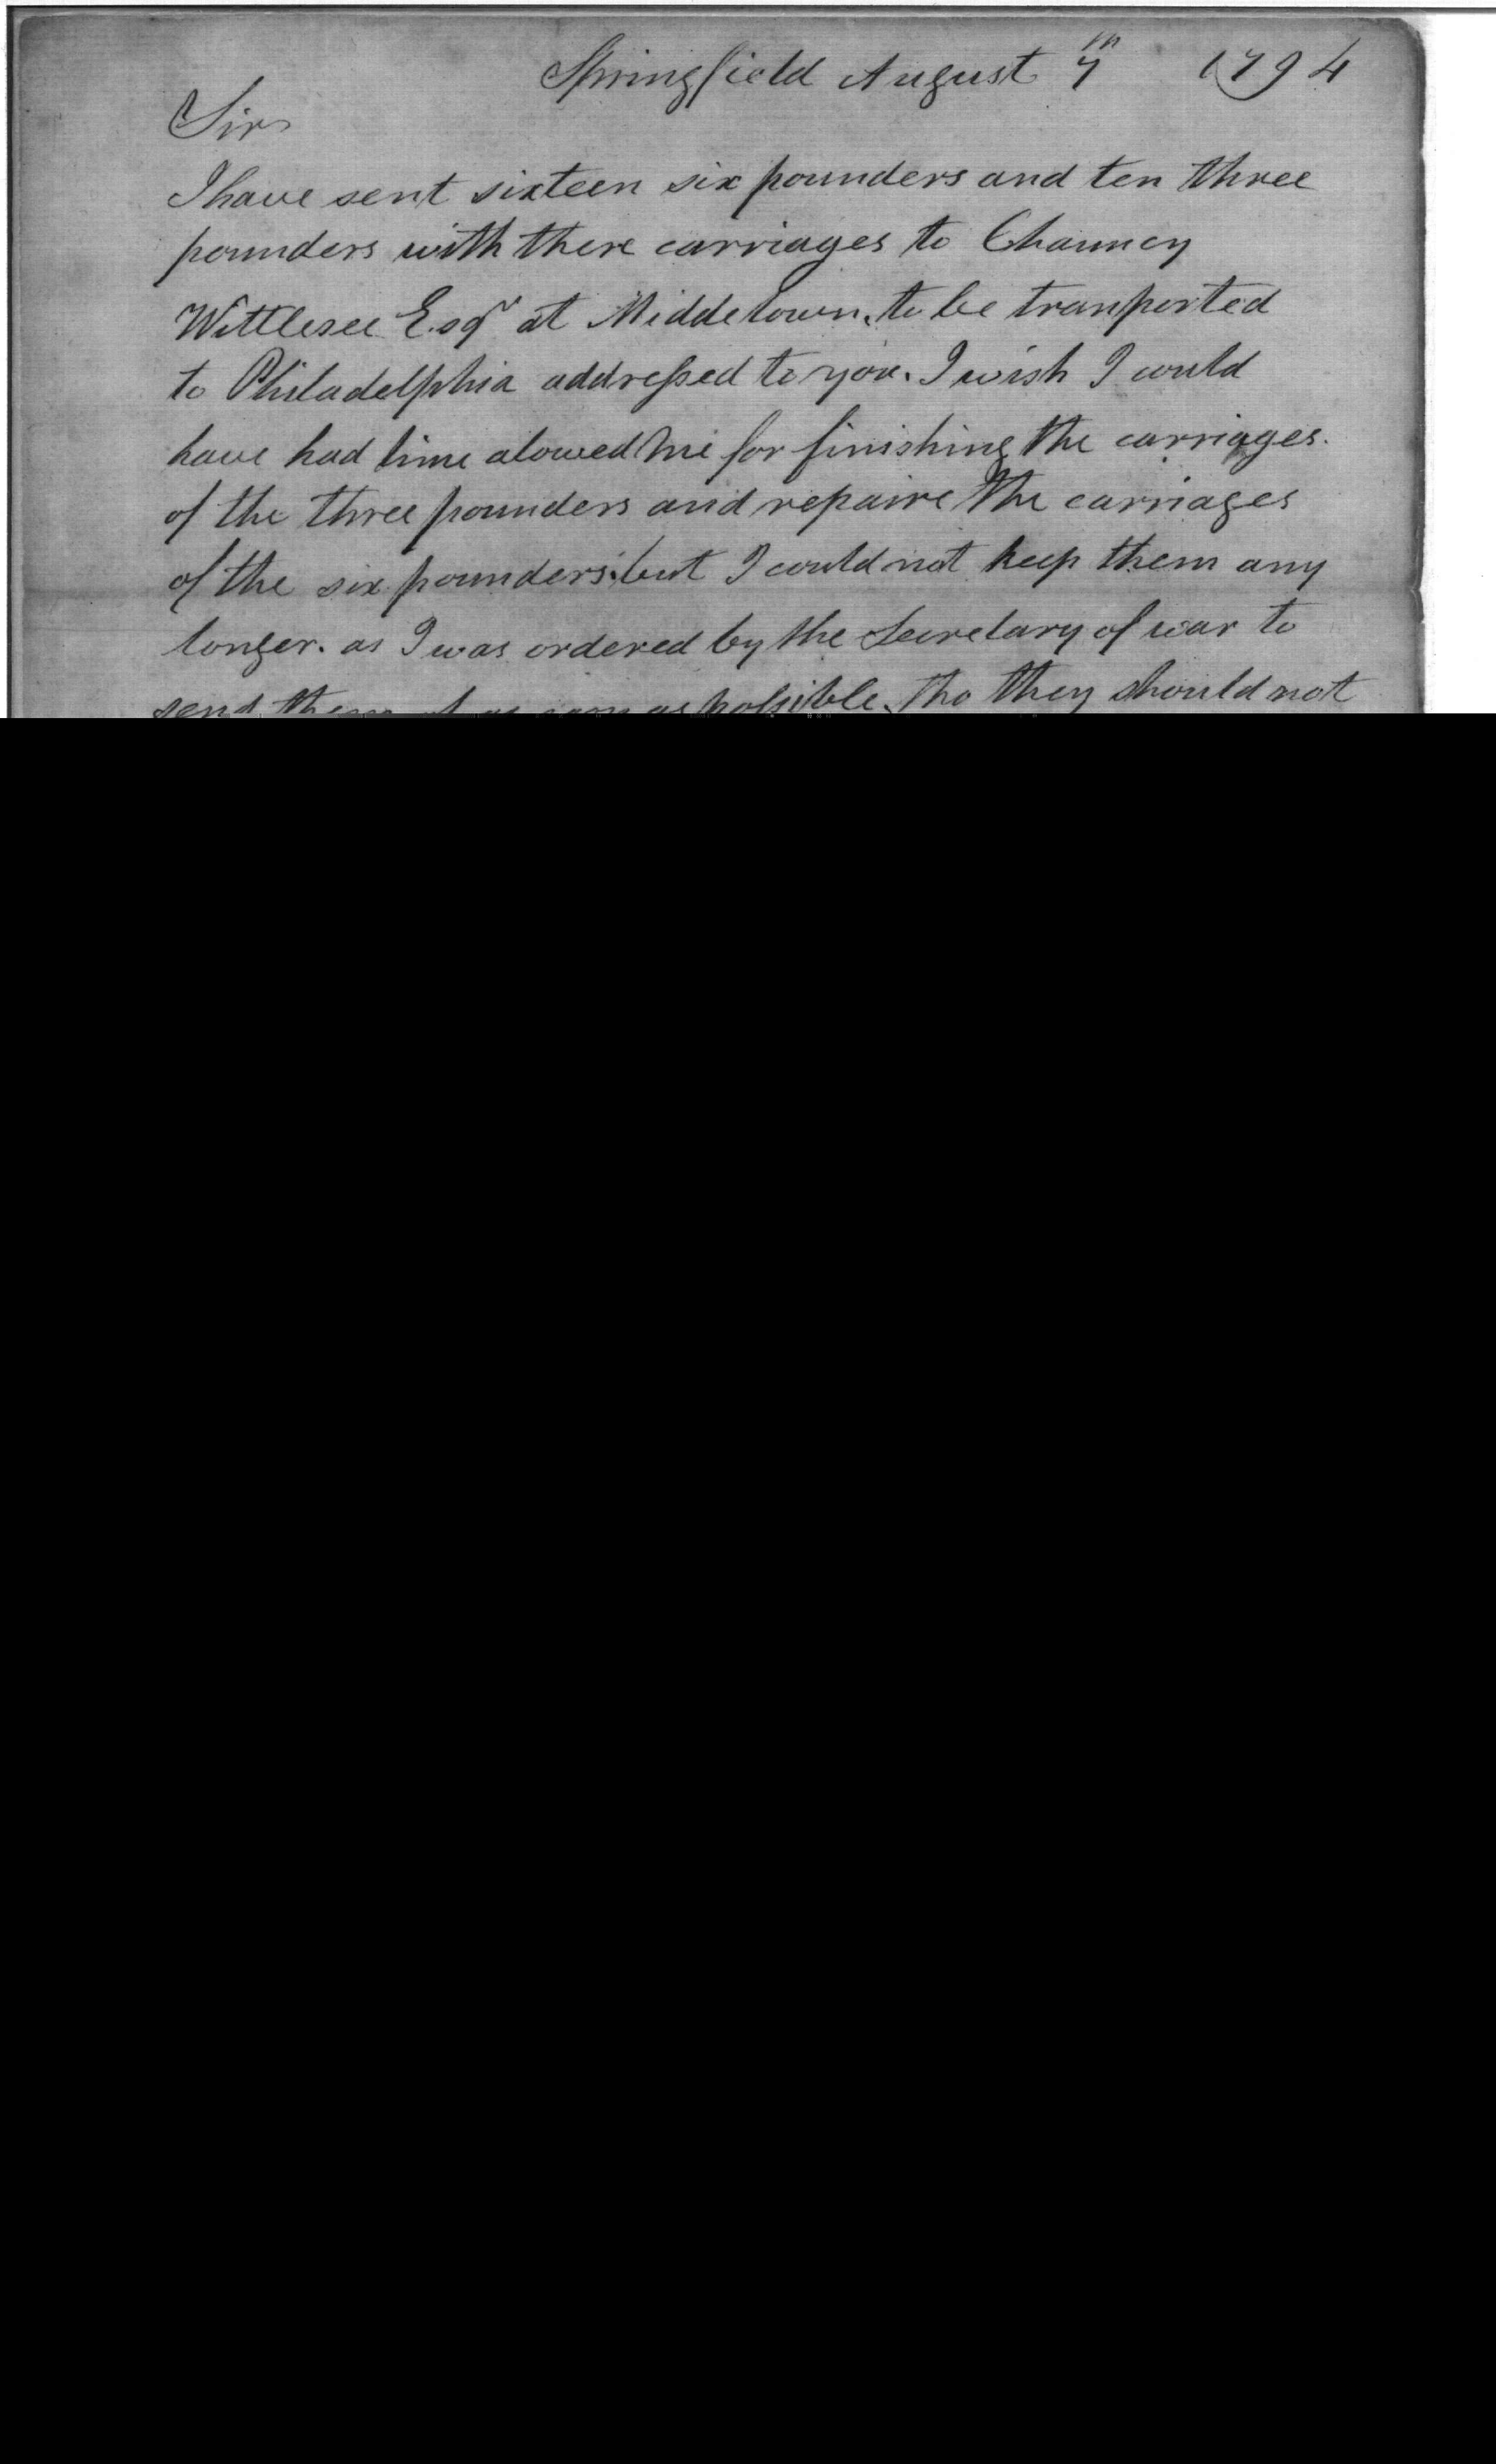 Springfield August 7th 1794
Sir
I have sent sixteen six pounders and ten three
pounders with there carriages to Chauncy
Wittlesee Esqr at Middetown, to be tranported
to Philadelphia addressed to you. I wish I could
have had time alowed me for finishing the carriages.
of the three pounders and repaire the carriages
of the six pounders; but I could not keep them any
longer. as I was ordered by the Secretary of war to
send them as possible, tho they should not